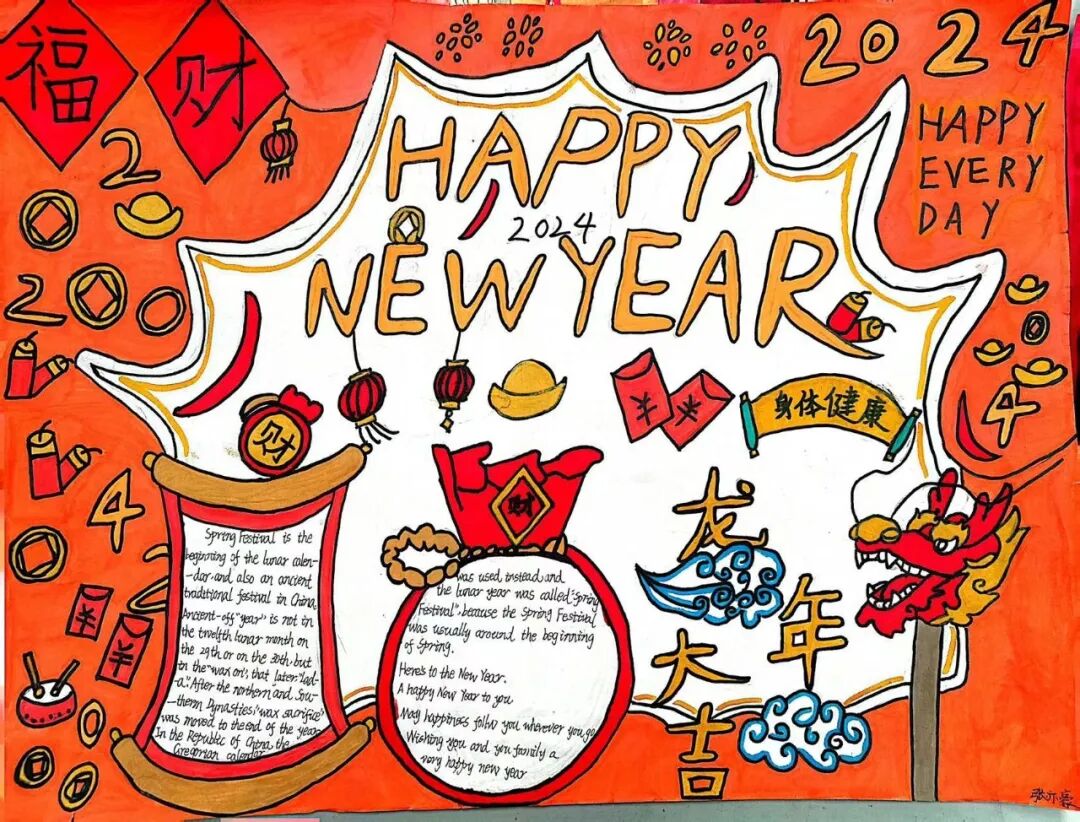 福
财
2024
HAPPY
EVERY
DAY
HAPPY
2024
NEW YEAR
2
200
4
2
4
财
半
米
身体健康
半
半
Spring Festival is the
beginning of the lunar calen-
-dar and also an ancient
traditional festival in China.
Ancient-off "year" is not in
the twelfth lunar month on
the 29th or on the 30th, but
in the "wax ori", that later "Lad-
-a". After the northern and Sou-
-thern Dynasties, "wax sacrifice"
was moved to the end of the year
In the Republic of China, the
Gregorian calendar
财
was used instead and
the lunar year was called "Spring
Festival", because the Spring Festival
was usually around the beginning
of Spring.
Here's to the New Year.
A happy New Year to you
May happiness follw you wherever you go
Wishing you and you framily a
very happy new year
龙
年
大
吉